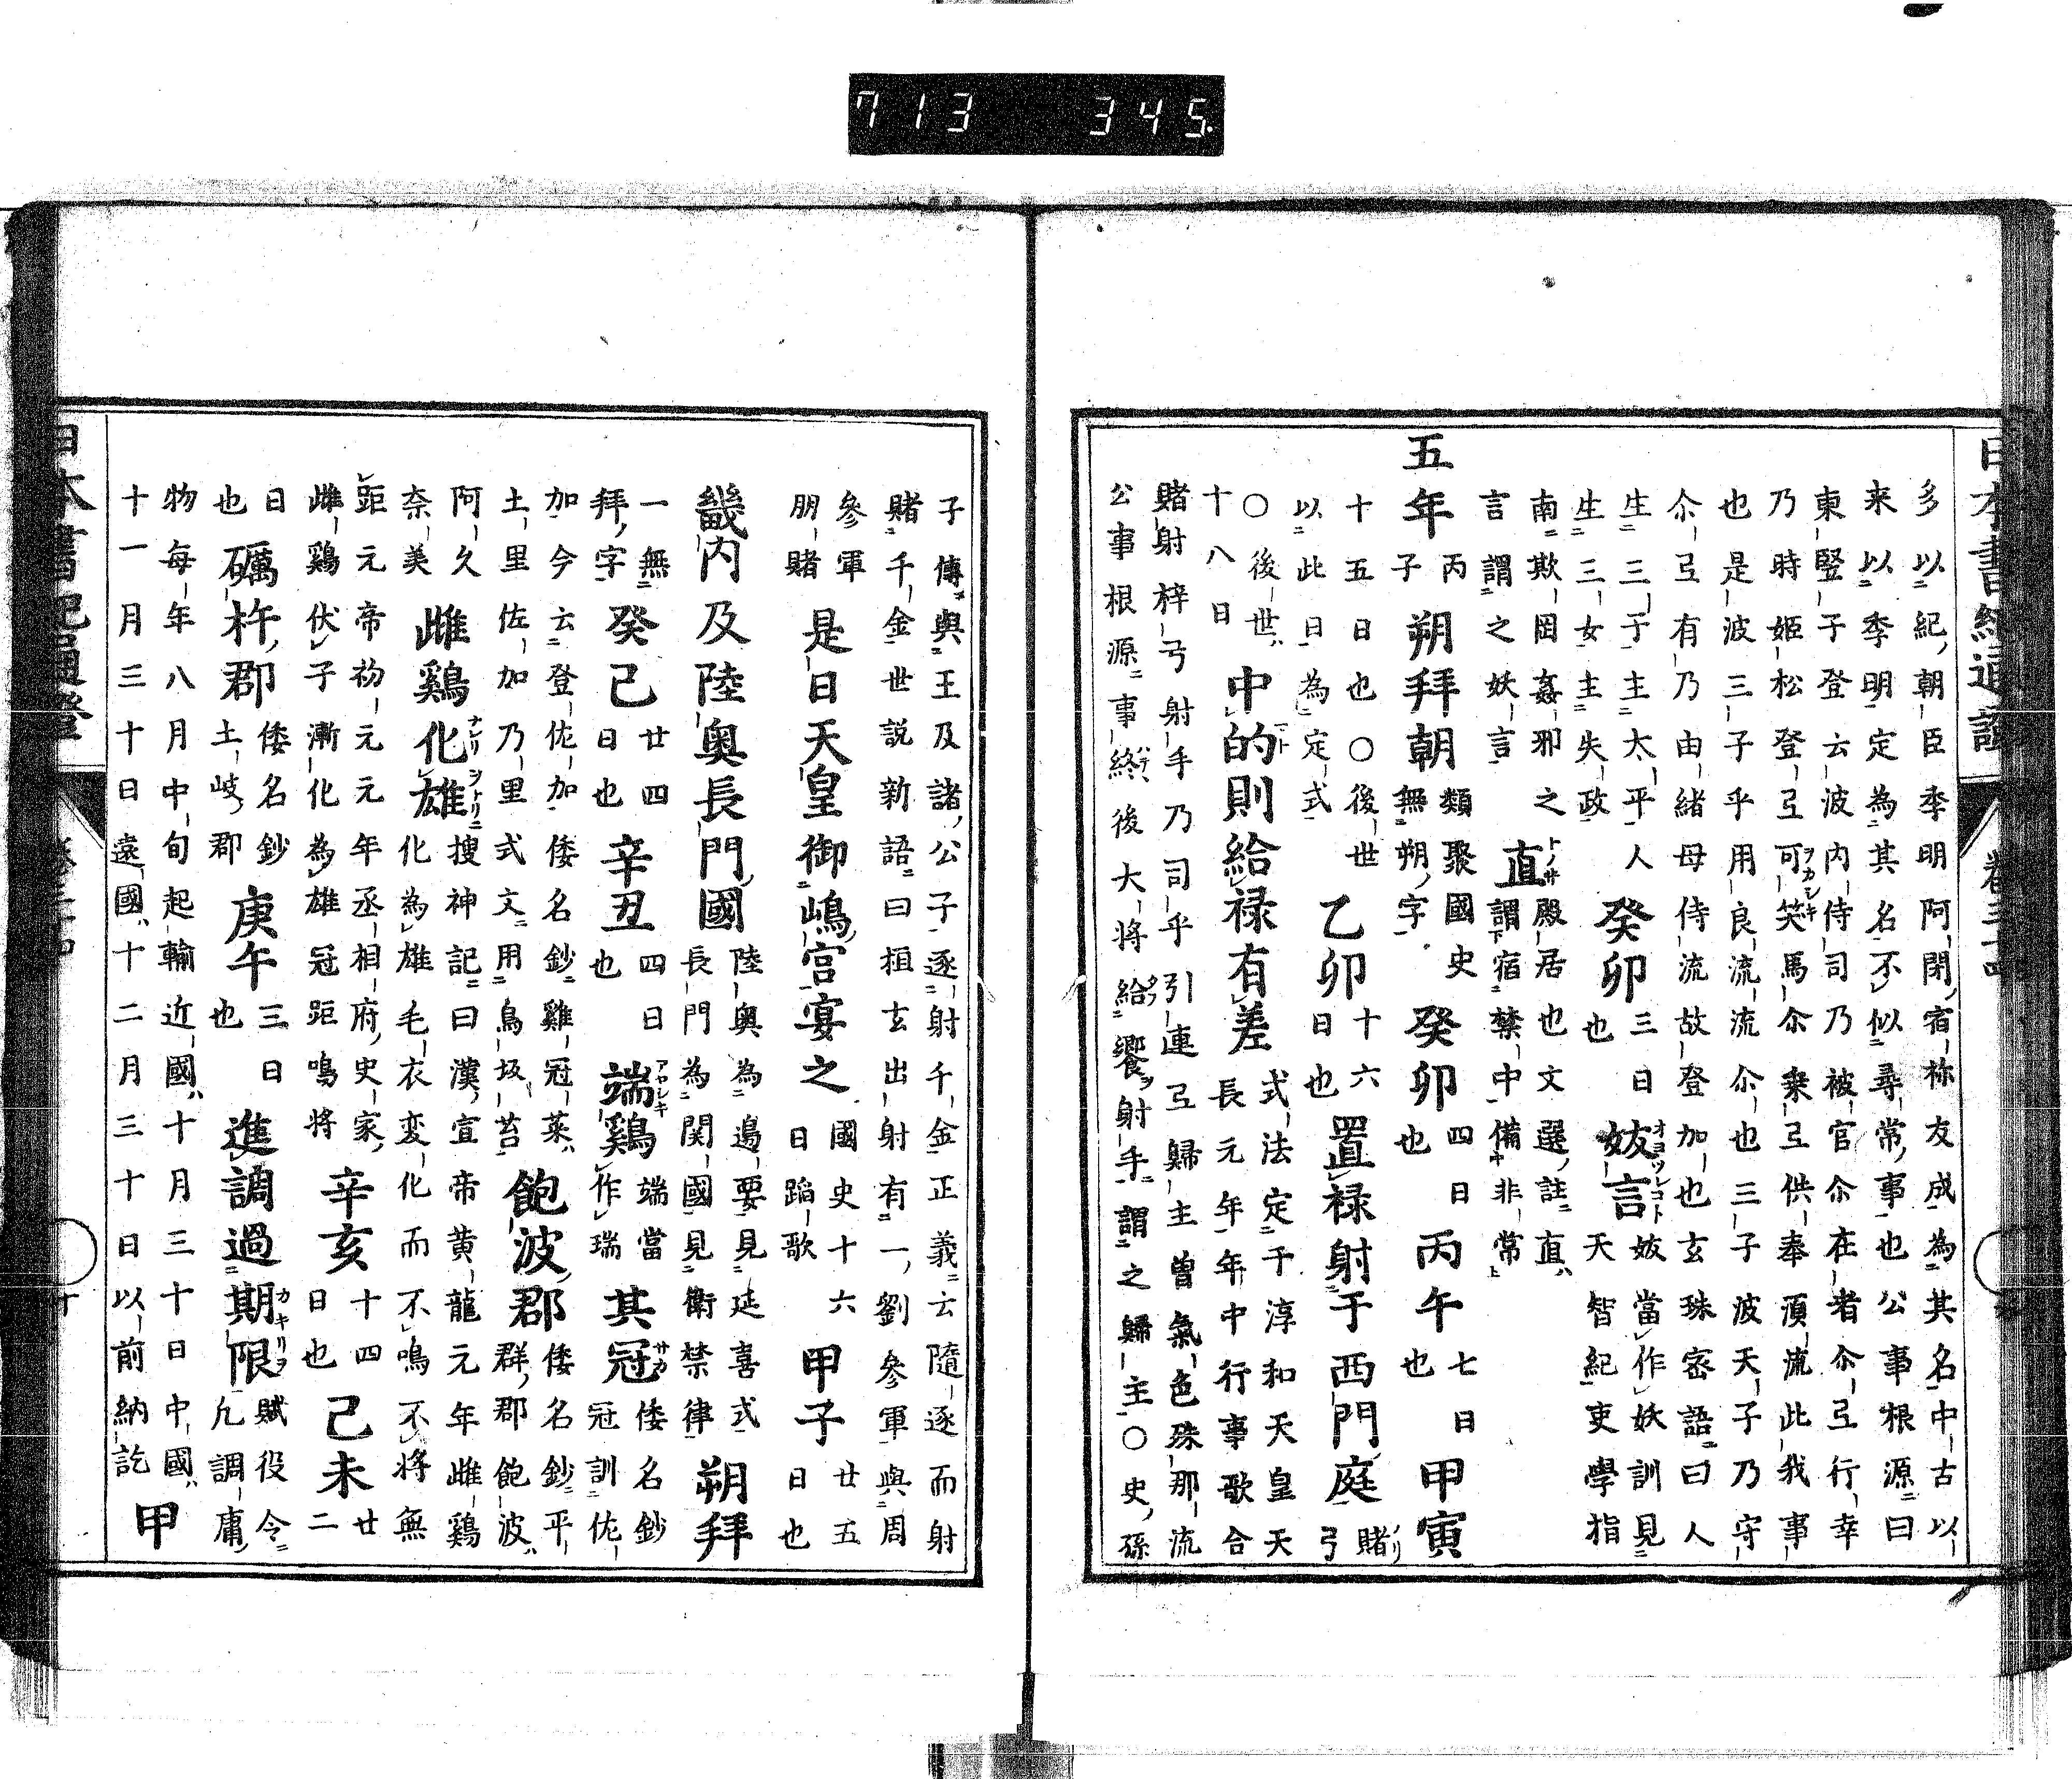 713 345
日本書紀通證 卷三十四
多以紀朝臣季明阿閇宿祢友成為其名中古以
来以季明定為其名不似尋常事也公事根源曰
東豎子登云波内侍司乃被官尒在者尒行幸
乃時姬松登弖可笑馬尒乗弖供奉須流此我事
也是波三子乎用良流流尒也三子波天子乃守
尒弖有乃由緒母侍流故登加也玄珠宻語曰人
生三子主太平人
生三女主失政
癸卯
三日
也
妭言
妭當作妖訓見
天智紀吏學指
南欺罔姦邪之
言謂之妖言
直
殿居也文選註直
謂宿禁中備非常
五年
丙
子
朔拜朝
類聚國史
無朔字
癸卯
四日
也
丙午
七日
也
甲寅
十五日也〇後世
以此日為定式
乙卯
十六
日也
置禄射于西門庭
賭
弓
〇後世
十八日
中的則給禄有差
式法定于淳和天皇天
長元年年中行事歌合
賭射梓弓射手乃司乎引連弖歸主曽氣色殊那流
公事根源事終後大将給饗射手謂之歸主〇史孫
子傳與王及諸公子逐射千金正義云隨逐而射
賭千金世説新語曰桓玄出射有一劉參軍與周
參軍
朋賭
是日天皇御嶋宮宴之
國史十六
日蹈歌
甲子
廿五
日也
畿内及陸奥長門國
陸奥為邉要見延喜式
長門為関國見衛禁律
朔拜
一無
拜字
癸己
廿四
日也
辛丑
四日
也
端鷄
端當
作瑞
其冠
倭名鈔
冠訓佐
加今云登佐加
土里佐加乃里式文用鳥坂苔
倭名鈔雞冠菜
飽波郡
倭名鈔平
群郡飽波
阿久
奈美
雌鷄化雄
搜神記曰漢宣帝黄龍元年雌鷄
化為雄毛衣変化而不鳴不将無
距元帝初元元年丞相府史家
雌鷄伏子漸化為雄冠距鳴将
辛亥
十四
日也
己未
廿二
日
也
礪杵郡
倭名鈔
土岐郡
庚午
三日
也
進調過期限
賦役令
凢調庸
物每年八月中旬起輸近國十月三十日中國
十一月三十日遠國十二月三十日以前納訖
甲
日本書紀通證 卷三十四 十